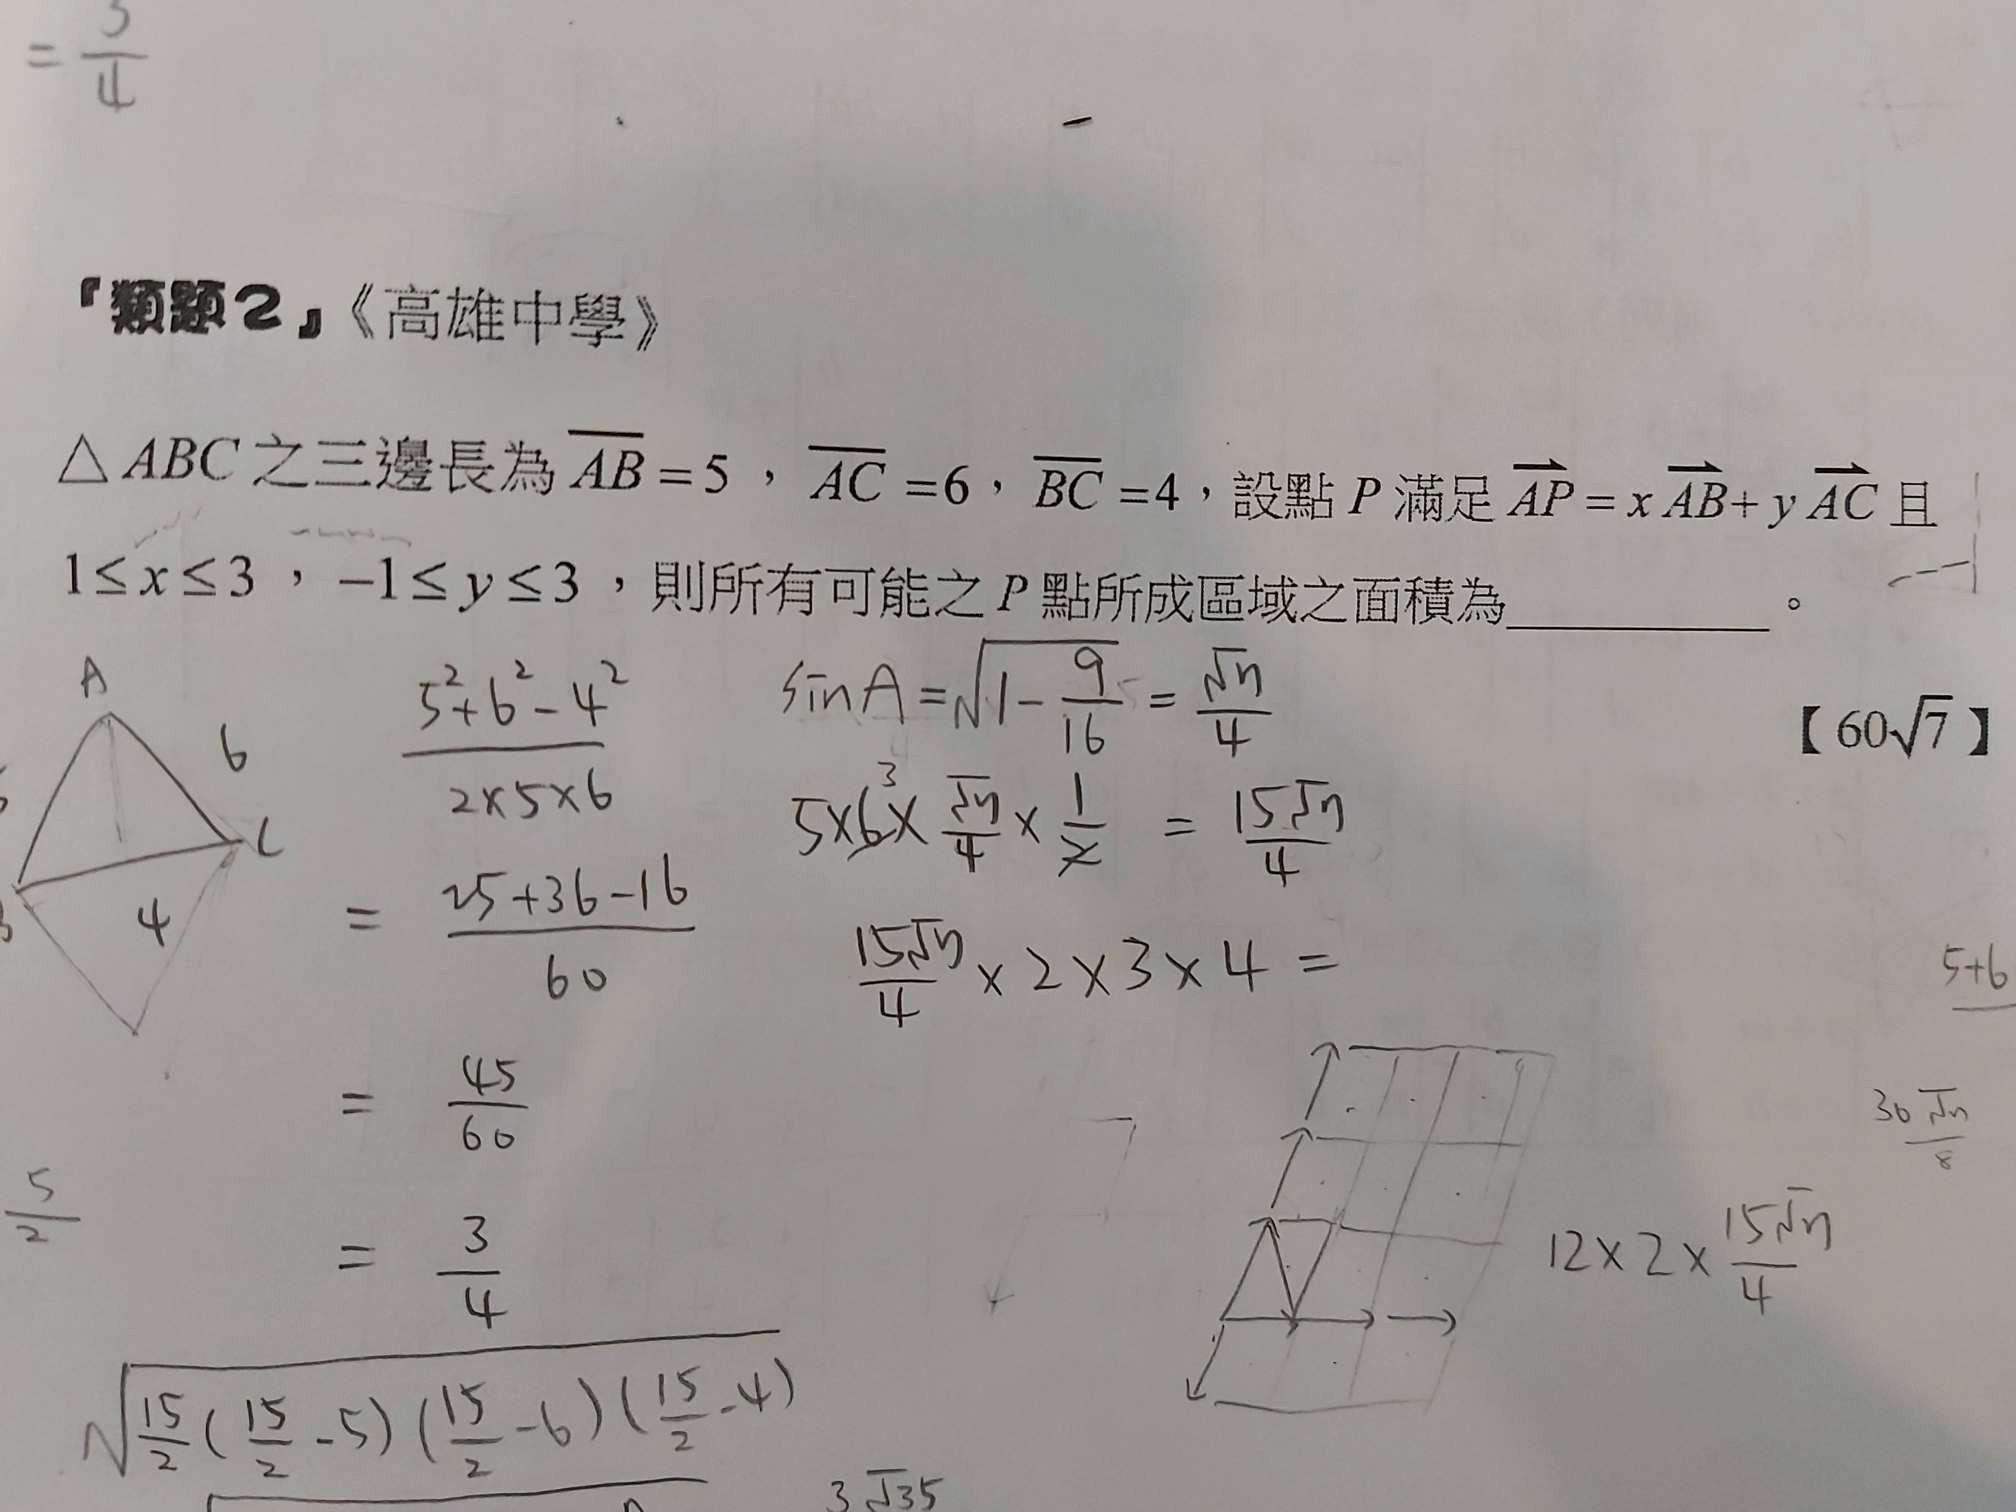 = 3/4
『類題2』《高雄中學》
△ABC之三邊長為 AB=5，AC=6，BC=4，設點 P 滿足 AP = x AB + y AC 且
1≤x≤3，−1≤y≤3，則所有可能之 P 點所成區域之面積為__________。
【60√7】
A
6
C
4
5²+6²-4²
2×5×6
= 25+36-16
60
= 45
60
= 3
4
sinA = √(1 - 9/16) = √7/4
5×6³× √7/4 × 1/2 = 15√7/4
15√7/4 × 2×3×4 =
5+6
30√7
8
12×2× 15√7/4
5
2
√(15/2 (15/2 - 5) (15/2 - 6) (15/2 - 4))
3√35